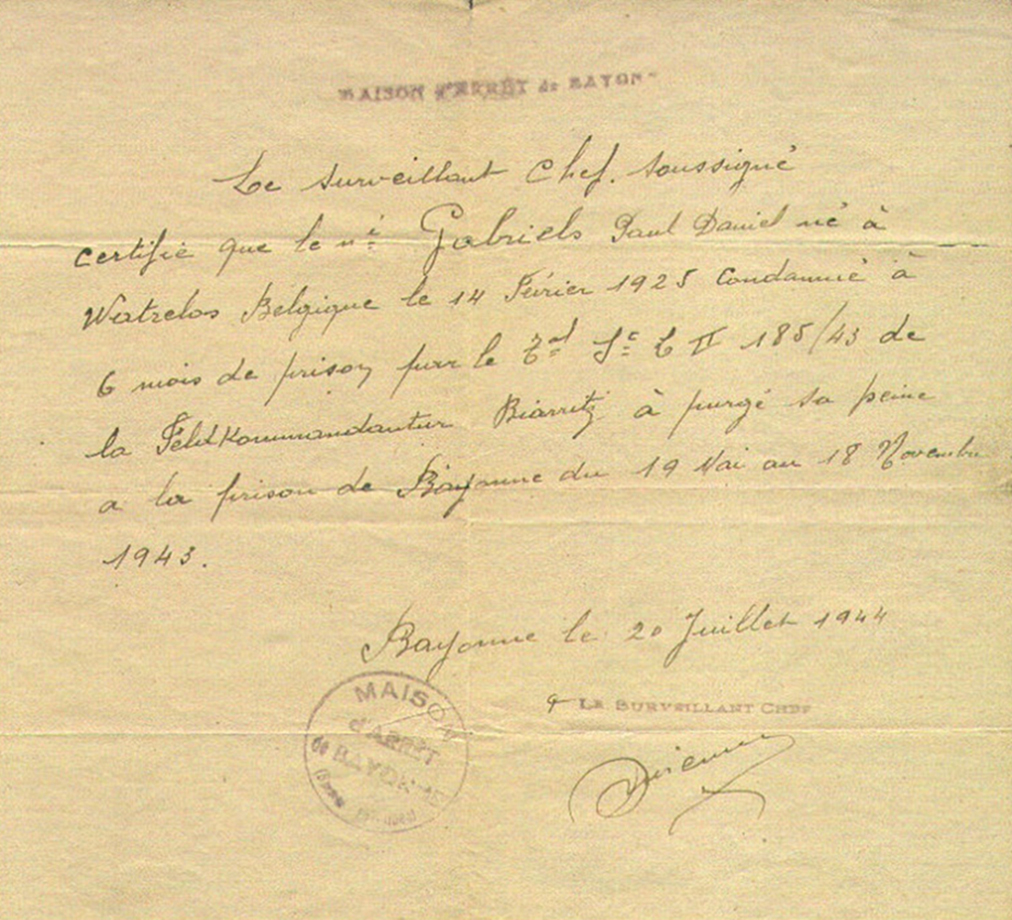 MAISON D'ARRÊT de BAYON
Le surveillant Chef. soussigné
certifie que le né Gabriels Paul Daniel né à
Watrelos Belgique le 14 Février 1925 condamné à
6 mois de prison par le Tal II 185/43 de
la Feldkommandantur Biarritz à purgé sa peine
a la prison de Bayonne du 19 Mai au 18 Novembre
1943.
Bayonne le 20 Juillet 1944
LE SURVEILLANT CHEF
MAISON
d'ARRÊT
de BAYONNE